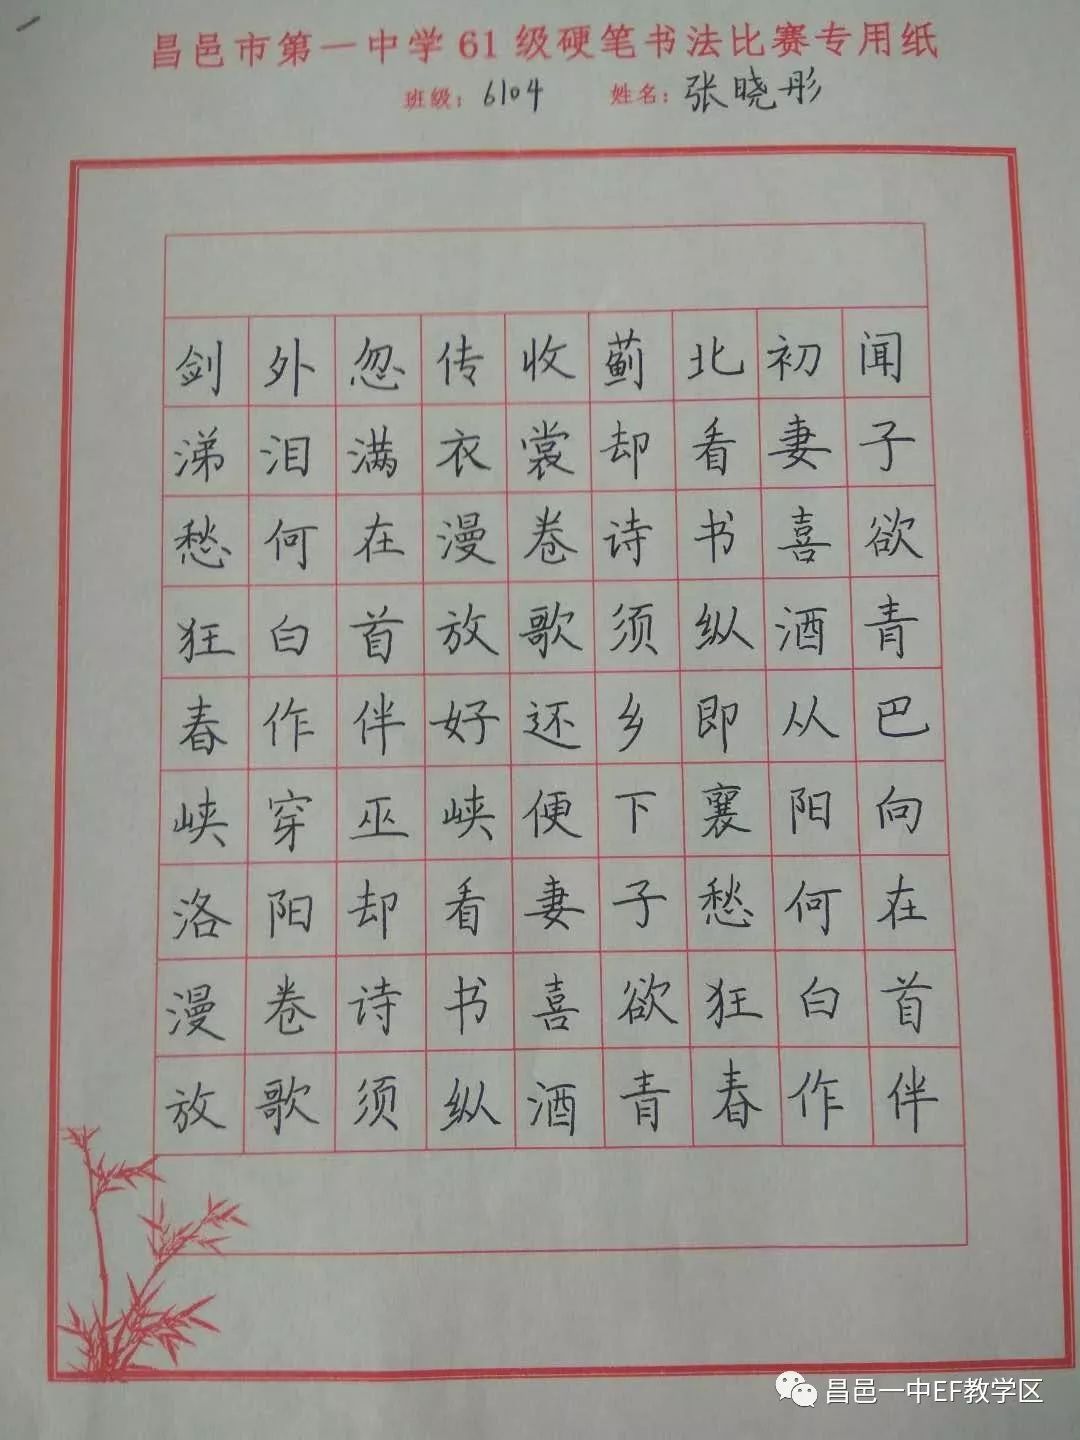 昌邑市第一中学61级硬笔书法比赛专用纸
班级：6104 姓名：张晓彤
剑外忽传收蓟北初闻
涕泪满衣裳却看妻子
愁何在漫卷诗书喜欲
狂白首放歌须纵酒青
春作伴好还乡即从巴
峡穿巫峡便下襄阳向
洛阳却看妻子愁何在
漫卷诗书喜欲狂白首
放歌须纵酒青春作伴
昌邑一中EF教学区